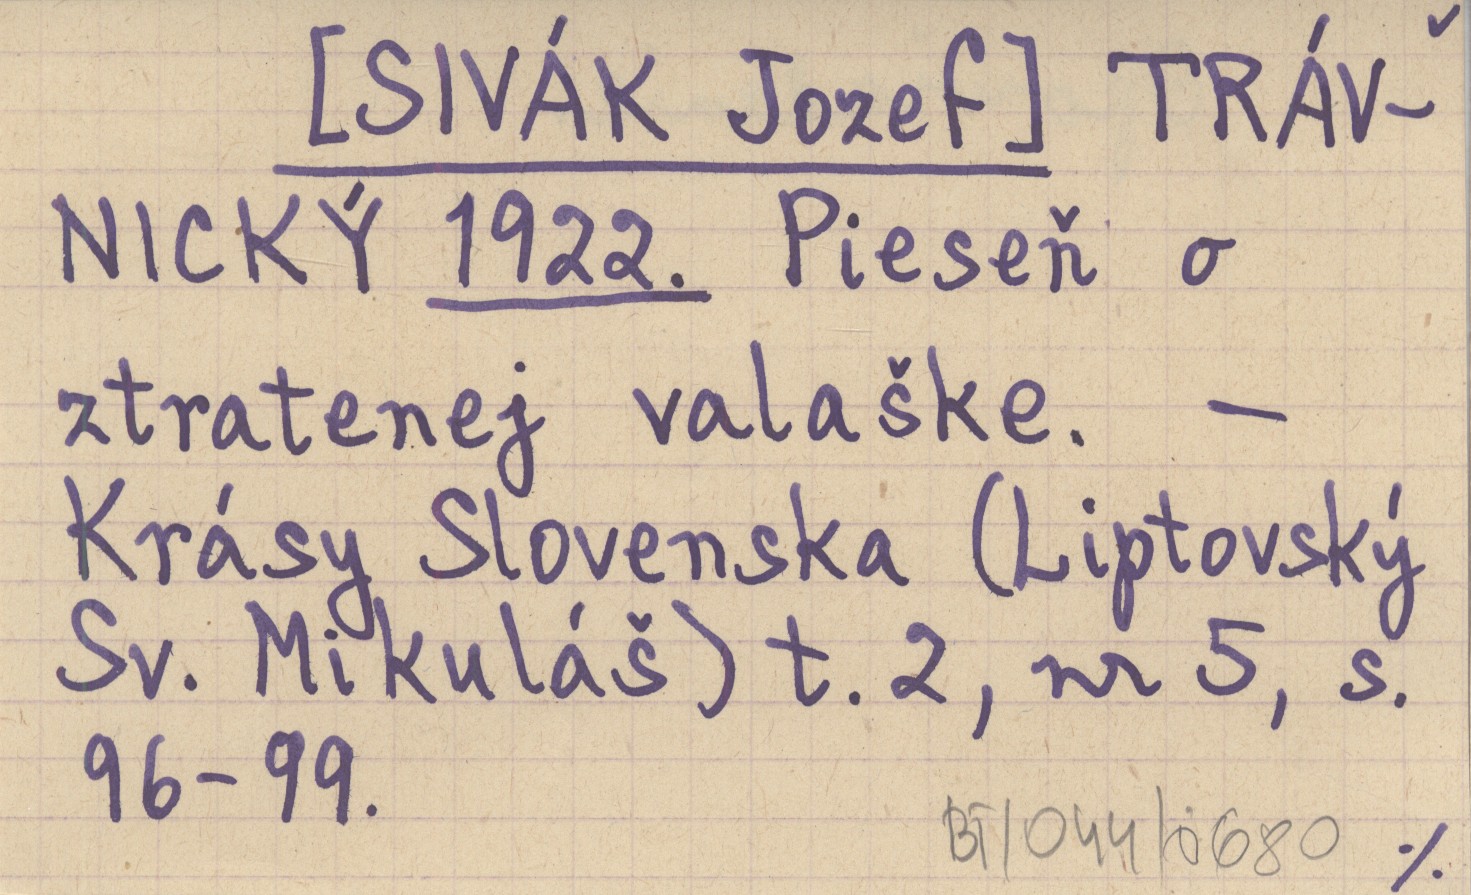 [SIVÁK Jozef] TRÁV-
NICKÝ 1922. Pieseň o
ztratenej valaške. —
Krásy Slovenska (Liptovský
Sv. Mikuláš) t. 2, nr 5, s.
96-99.
BT/044/0680 ./.